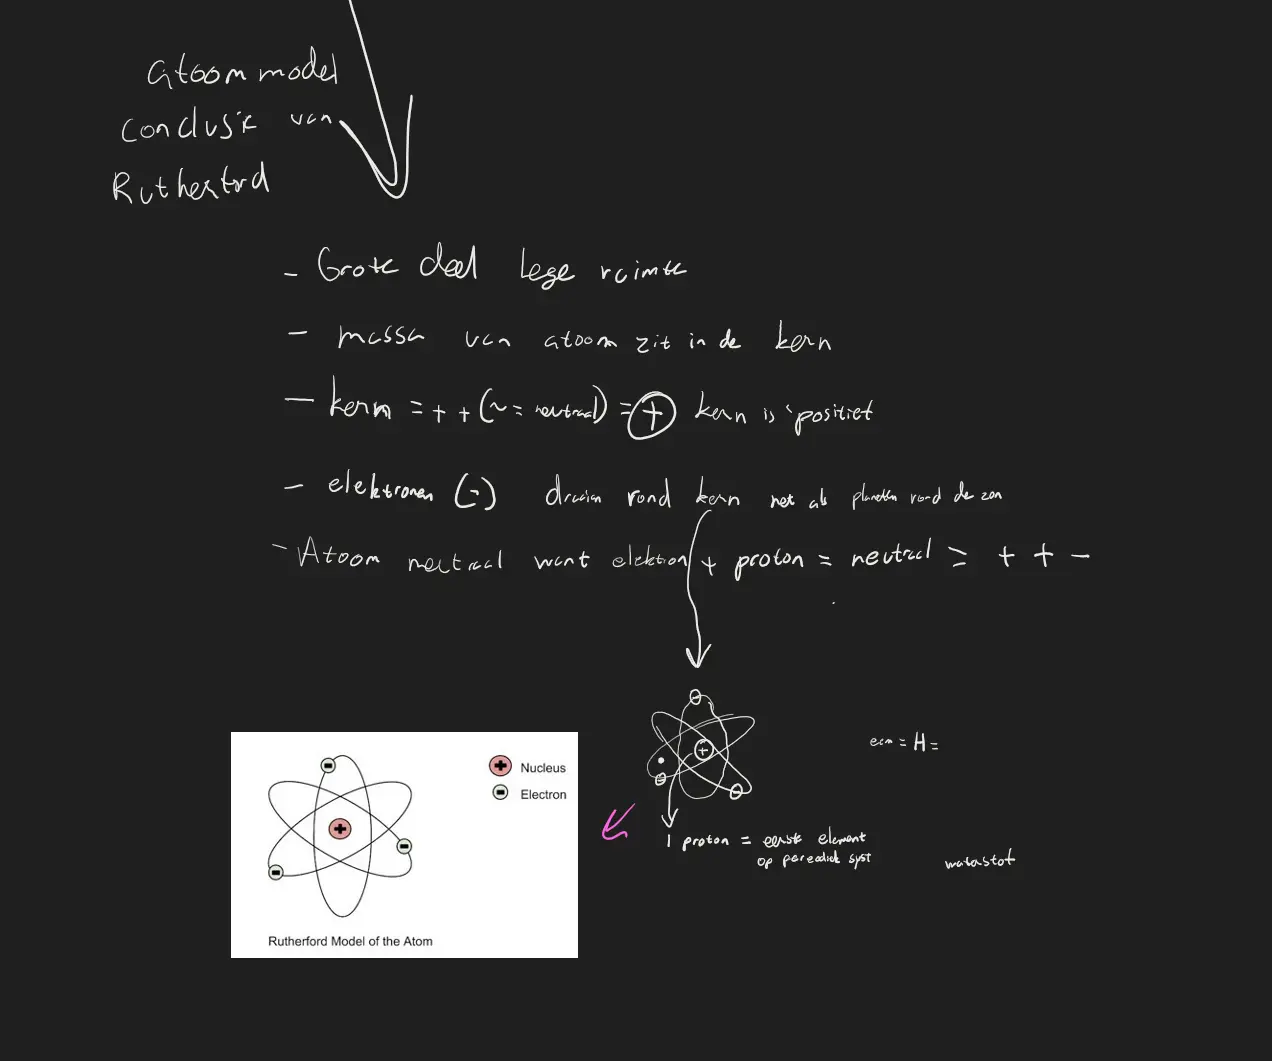 atoom model
conclusie van
Rutherford
- Grote deel lege ruimte
- massa van atoom zit in de kern
- kern = + + (~ = neutraal) = + kern is positief
- elektronen (-) draaien rond kern net als planeten rond de zon
- Atoom neutraal want elektron + proton = neutraal = + + -
Nucleus
Electron
Rutherford Model of the Atom
= H =
1 proton = eerste element
op periodiek syst
waterstof